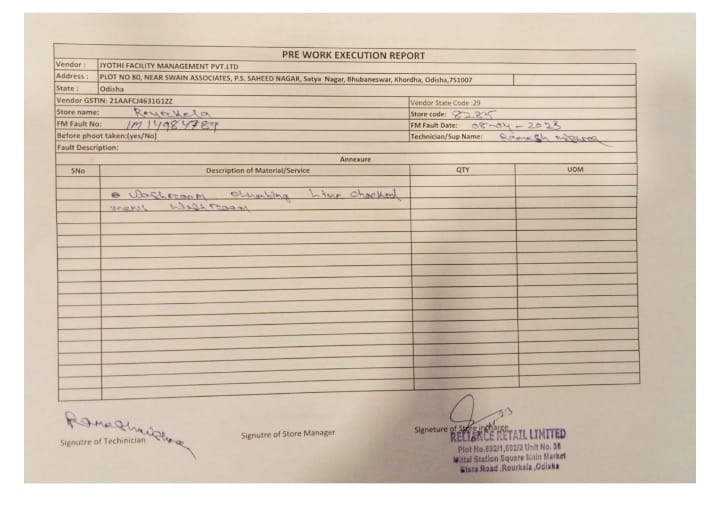 PRE WORK EXECUTION REPORT
Vendor : JYOTHI FACILITY MANAGEMENT PVT.LTD
Address : PLOT NO 80, NEAR SWAIN ASSOCIATES, P.S. SAHEED NAGAR, Satya Nagar, Bhubaneswar, Khordha, Odisha,751007
State : Odisha
Vendor GSTIN: 21AAFCJ4631G1ZZ Vendor State Code :29
Store name: Rourkela Store code: 8285
FM Fault No: IM14984789 FM Fault Date: 08-04-2023
Before phoot taken:(yes/No) Technician/Sup Name: Ramesh
Fault Description:
Annexure
SNo Description of Material/Service QTY UOM
Washroom Line Checked
Washroom
Signutre of Techinician Signutre of Store Manager Signeture of Store incharge
RELIANCE RETAIL LIMITED
Plot No.692/1,692/2 Unit No. 36
Mittal Station Square Main Market
Road ,Rourkela ,Odisha